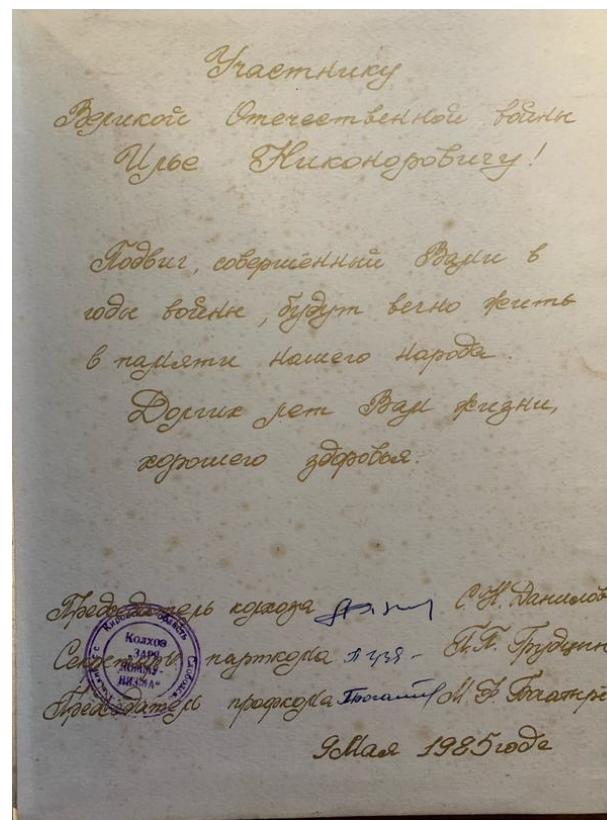 Участнику
Великой Отечественной войны
Илье Никоноровичу!
Подвиг, совершённый Вами в
годы войны, будут вечно жить
в памяти нашего народа.
Долгих лет Вам жизни,
хорошего здоровья.
Председатель колхоза С. Н. Данилов
Секретарь парткома П. П.
Председатель профкома М. Ф.
9 Мая 1985 года
Кировская область
Колхоз
"ЗАРЯ
КОММУ-
НИЗМА"